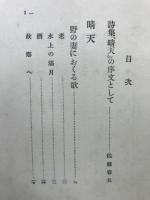 目次
詩集「晴天」の序文として……佐藤春夫
晴天
野の妻におくる歌
老
水上の満月
酒
故郷へ